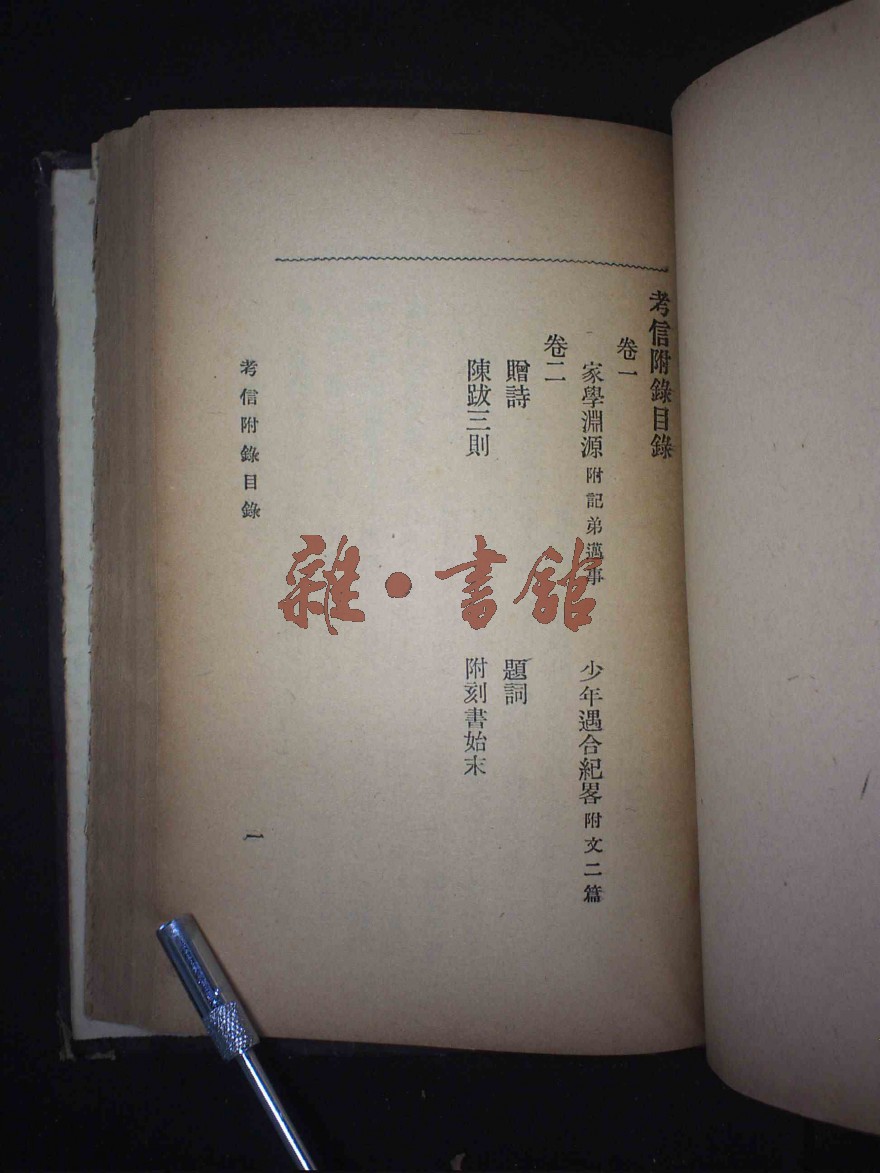 考信附錄目錄
卷一
家學淵源附記弟邁事 少年遇合紀畧附文二篇
卷二
贈詩 題詞
陳跋三則 附刻書始末
考信附錄目錄 一
雜·書館